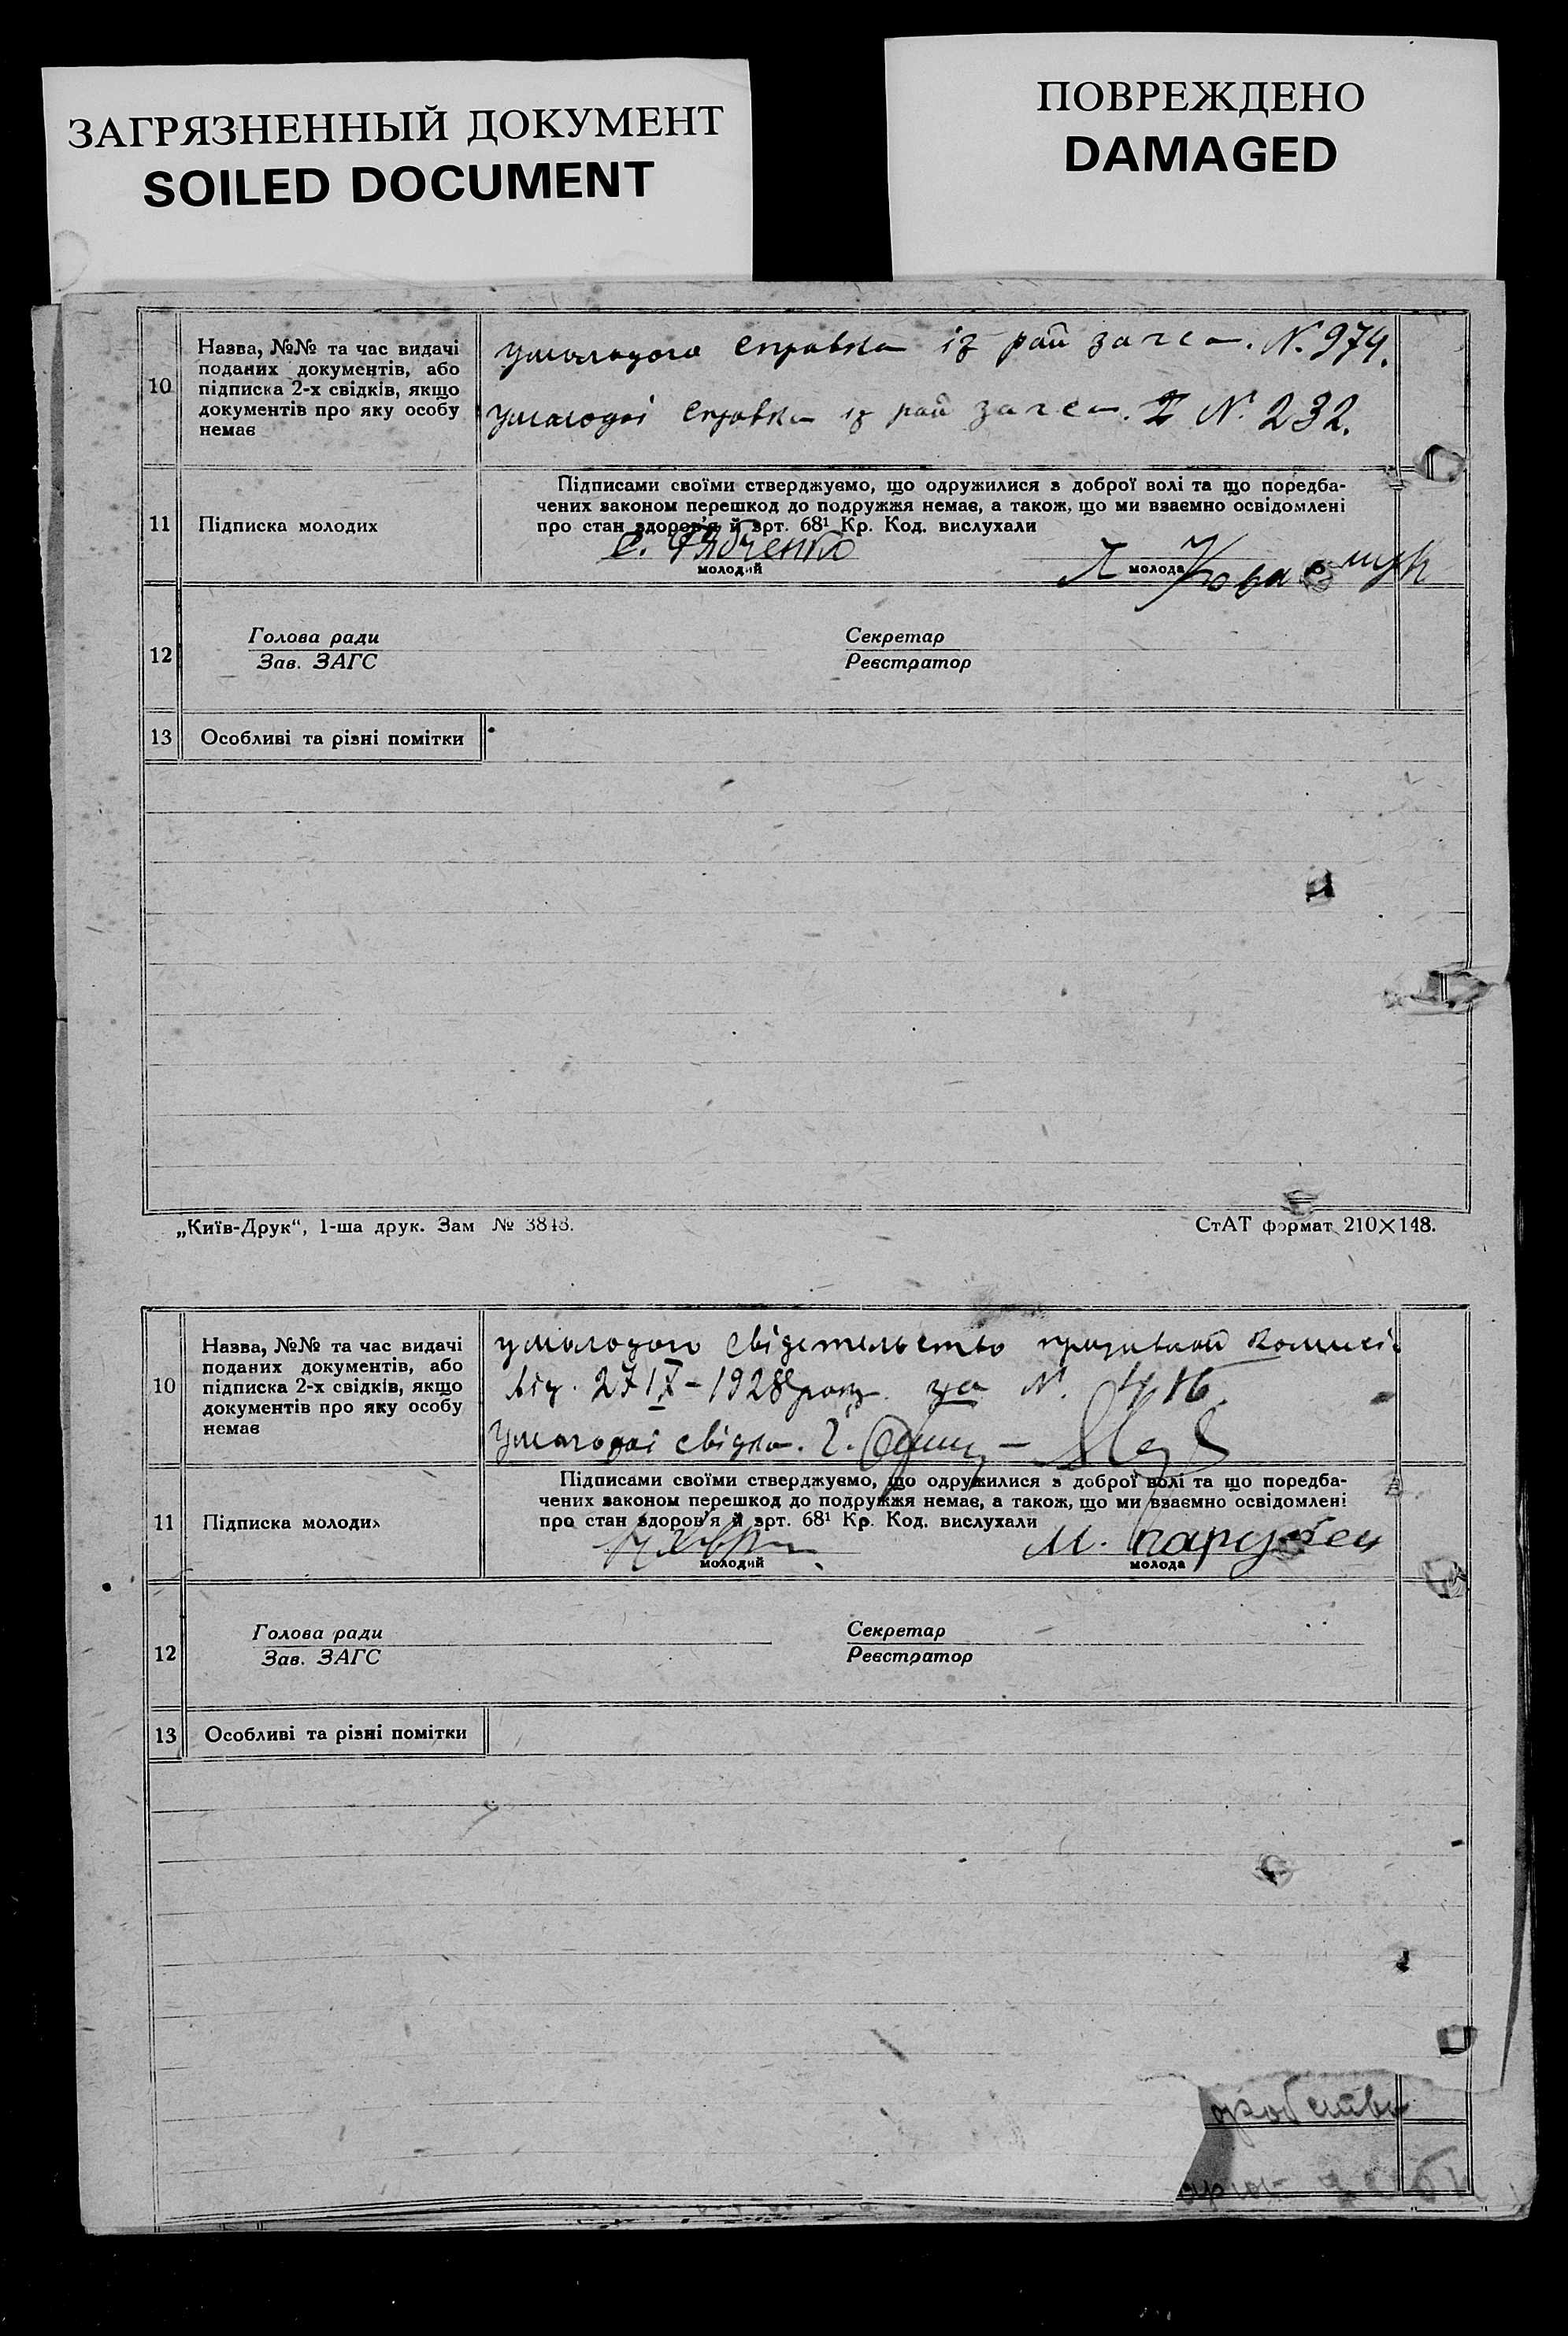 ЗАГРЯЗНЕННЫЙ ДОКУМЕНТ
SOILED DOCUMENT
ПОВРЕЖДЕНО
DAMAGED
10
Назва, №№ та час видачі
поданих документів, або
підписка 2-х свідків, якщо
документів про яку особу
немає
умолодого справка із рай загса. N. 974.
умолодої справка із рай загса. N. 232.
11
Підписка молодих
Підписами своїми стверджуємо, що одружилися з доброї волі та що передба-
чених законом перешкод до подружжя немає, а також, що ми взаємно освідомлені
про стан здоров'я й арт. 68¹ Кр. Код. вислухали
молодий
молода
12
Голова ради
Зав. ЗАГС
Секретар
Реєстратор
13
Особливі та різні помітки
„Київ-Друк“, 1-ша друк. Зам № 3848.
СтАТ формат 210×148.
10
Назва, №№ та час видачі
поданих документів, або
підписка 2-х свідків, якщо
документів про яку особу
немає
умолодого свідетельство призивной комисі
від. 27 IX - 1928 року за N.
умолодої свідки.
11
Підписка молодих
Підписами своїми стверджуємо, що одружилися з доброї волі та що передба-
чених законом перешкод до подружжя немає, а також, що ми взаємно освідомлені
про стан здоров'я й арт. 68¹ Кр. Код. вислухали
М.
молодий
молода
12
Голова ради
Зав. ЗАГС
Секретар
Реєстратор
13
Особливі та різні помітки